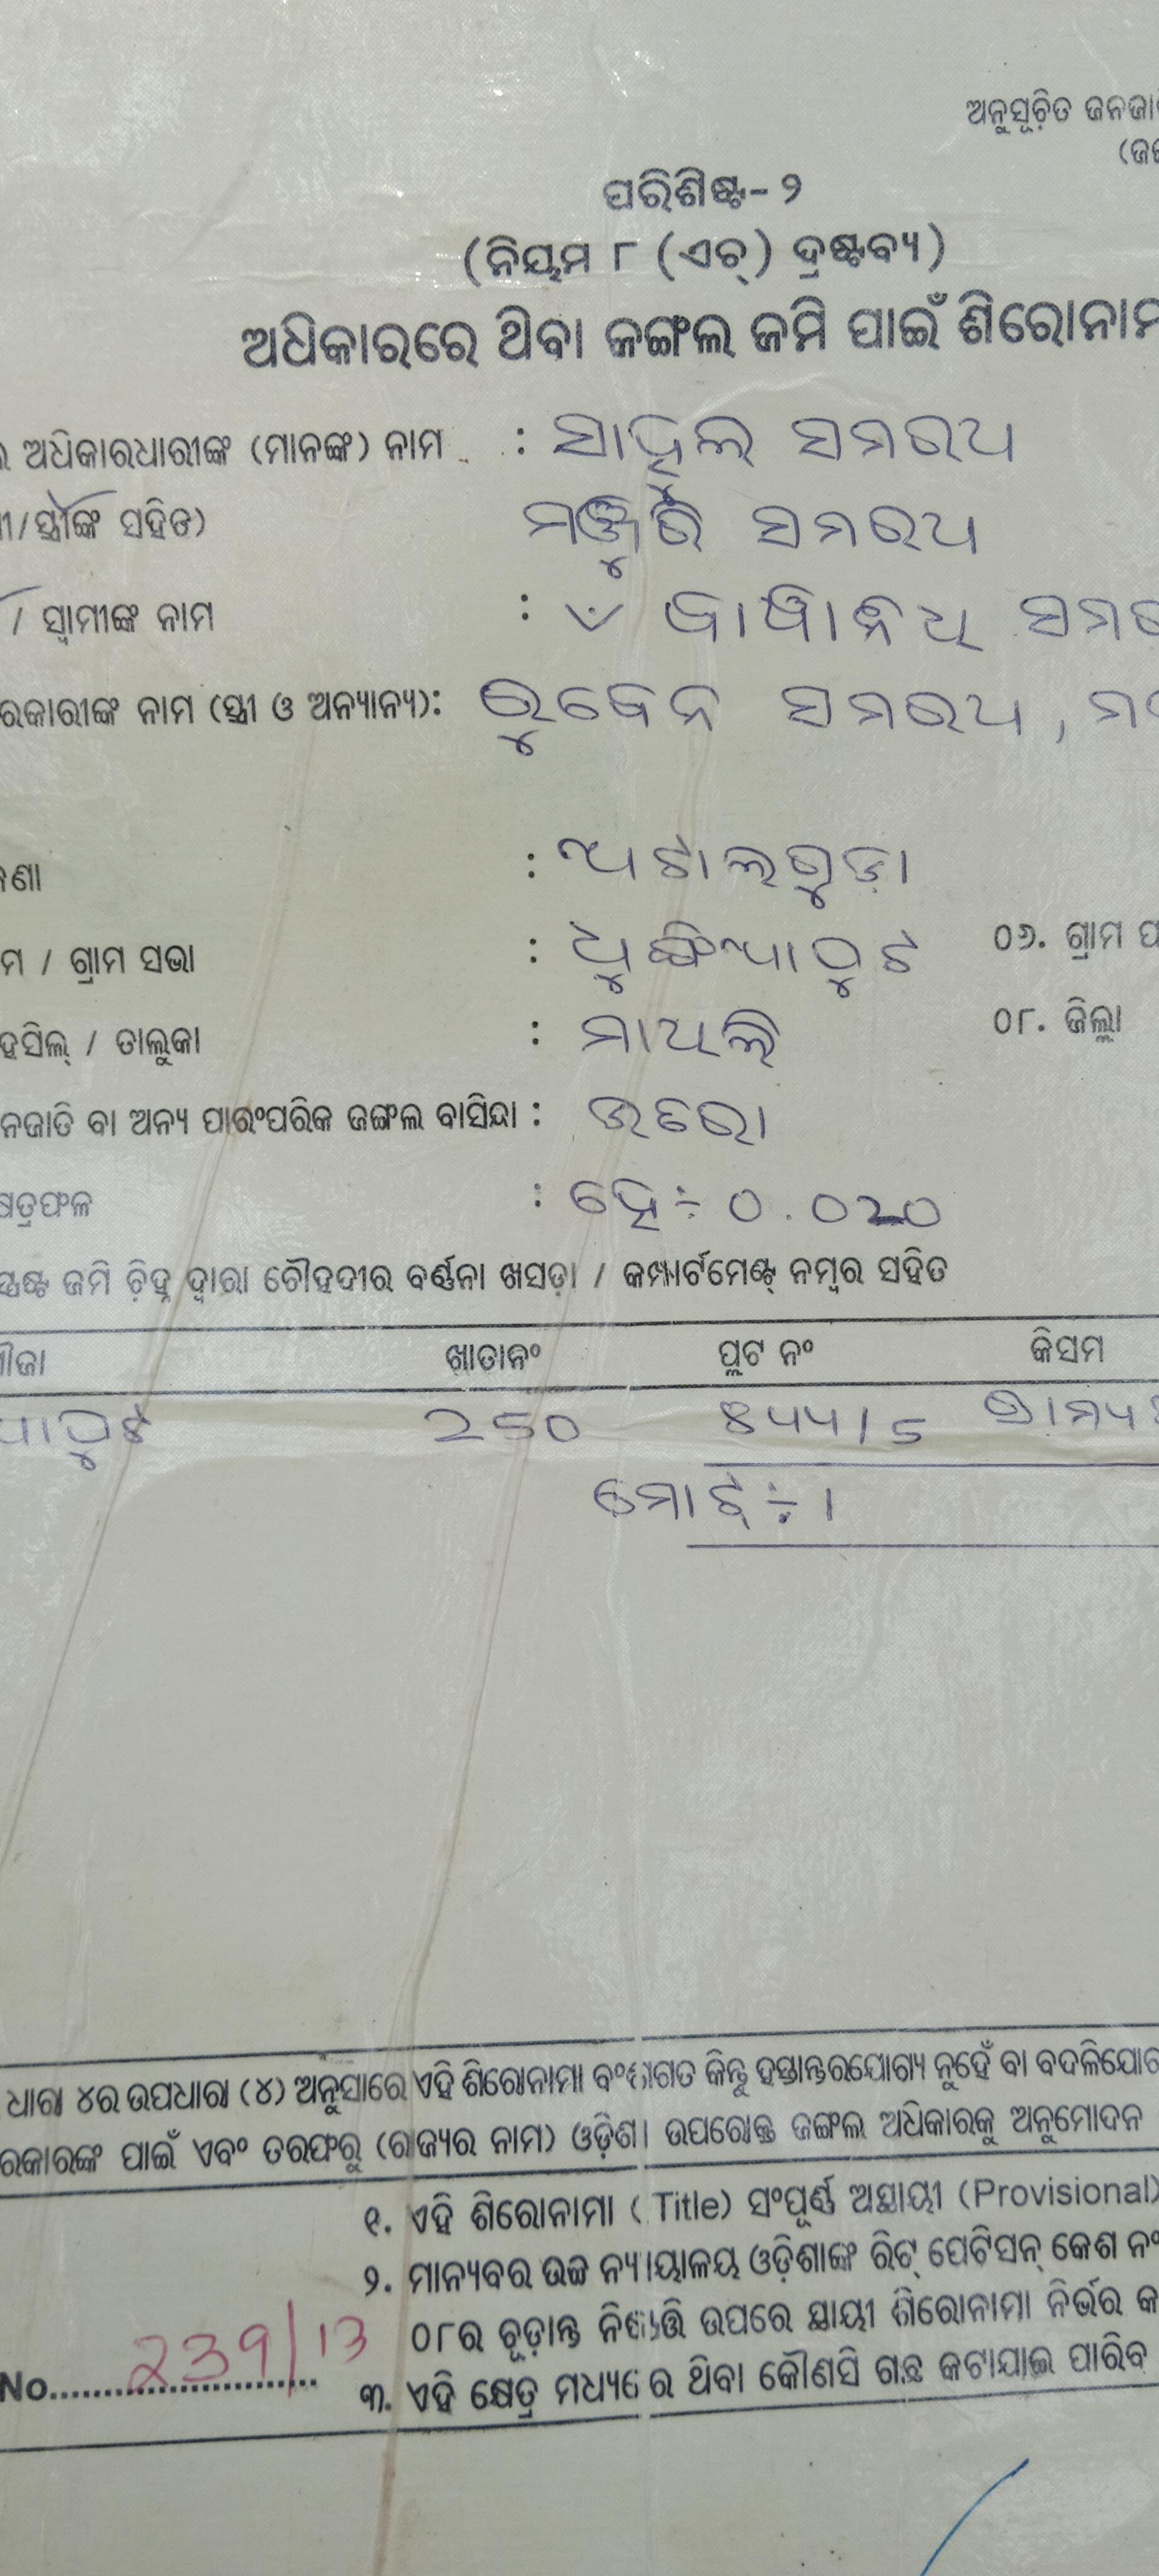 ଅନୁସୂଚିତ ଜନଜା
(ଜ
ପରିଶିଷ୍ଟ- ୨
(ନିୟମ ୮ (ଏଚ୍) ଦ୍ରଷ୍ଟବ୍ୟ)
ଅଧିକାରରେ ଥିବା ଜଙ୍ଗଲ ଜମି ପାଇଁ ଶିରୋନାମ
ଅଧିକାରଧାରୀଙ୍କ (ମାନଙ୍କ) ନାମ : ସାହୁଲ ସମରଥ
ୀ/ସ୍ତ୍ରୀଙ୍କ ସହିତ) ମଞ୍ଜୁରି ସମରଥ
/ ସ୍ୱାମୀଙ୍କ ନାମ :
ରକାରୀଙ୍କ ନାମ (ସ୍ତ୍ରୀ ଓ ଅନ୍ୟାନ୍ୟ): ରୁବେନ ସମରଥ,
ଣା : ଅଟାଲଗୁଡ଼ା
ମ / ଗ୍ରାମ ସଭା : ୦୬. ଗ୍ରାମ ପ
ହସିଲ୍ / ତାଲୁକା : ମାଥିଲି ୦୮. ଜିଲ୍ଲା
ନଜାତି ବା ଅନ୍ୟ ପାରଂପରିକ ଜଙ୍ଗଲ ବାସିନ୍ଦା :
ଷତ୍ରଫଳ : ହେ ÷ ୦.୦20
ସ୍ପଷ୍ଟ ଜମି ଚିହ୍ନ ଦ୍ୱାରା ଚୌହଦୀର ବର୍ଣ୍ଣନା ଖସଡ଼ା / କମ୍ପାର୍ଟମେଣ୍ଟ ନମ୍ବର ସହିତ
ୌଜା ଖାତାନଂ ପ୍ଲଟ ନଂ କିସମ
250
ମୋଟ୍ ÷ ୧
ଧାରା ୪ର ଉପଧାରା (୪) ଅନୁସାରେ ଏହି ଶିରୋନାମା ବଂଶଗତ କିନ୍ତୁ ହସ୍ତାନ୍ତରଯୋଗ୍ୟ ନୁହେଁ ବା ବଦଳିଯୋଗ
ରକାରଙ୍କ ପାଇଁ ଏବଂ ତରଫରୁ (ରାଜ୍ୟର ନାମ) ଓଡ଼ିଶା ଉପରୋକ୍ତ ଜଙ୍ଗଲ ଅଧିକାରକୁ ଅନୁମୋଦନ
୧. ଏହି ଶିରୋନାମା (Title) ସଂପୂର୍ଣ୍ଣ ଅସ୍ଥାୟୀ (Provisional)
୨. ମାନ୍ୟବର ଉଚ୍ଚ ନ୍ୟାୟାଳୟ ଓଡ଼ିଶାଙ୍କ ରିଟ୍ ପେଟିସନ୍ କେଶ ନଂ
୦୮ର ଚୂଡ଼ାନ୍ତ ନିଷ୍ପତ୍ତି ଉପରେ ସ୍ଥାୟୀ ଶିରୋନାମା ନିର୍ଭର କ
No. 239/13
୩. ଏହି କ୍ଷେତ୍ର ମଧ୍ୟରେ ଥିବା କୌଣସି ଗଛ କଟାଯାଇ ପାରିବ